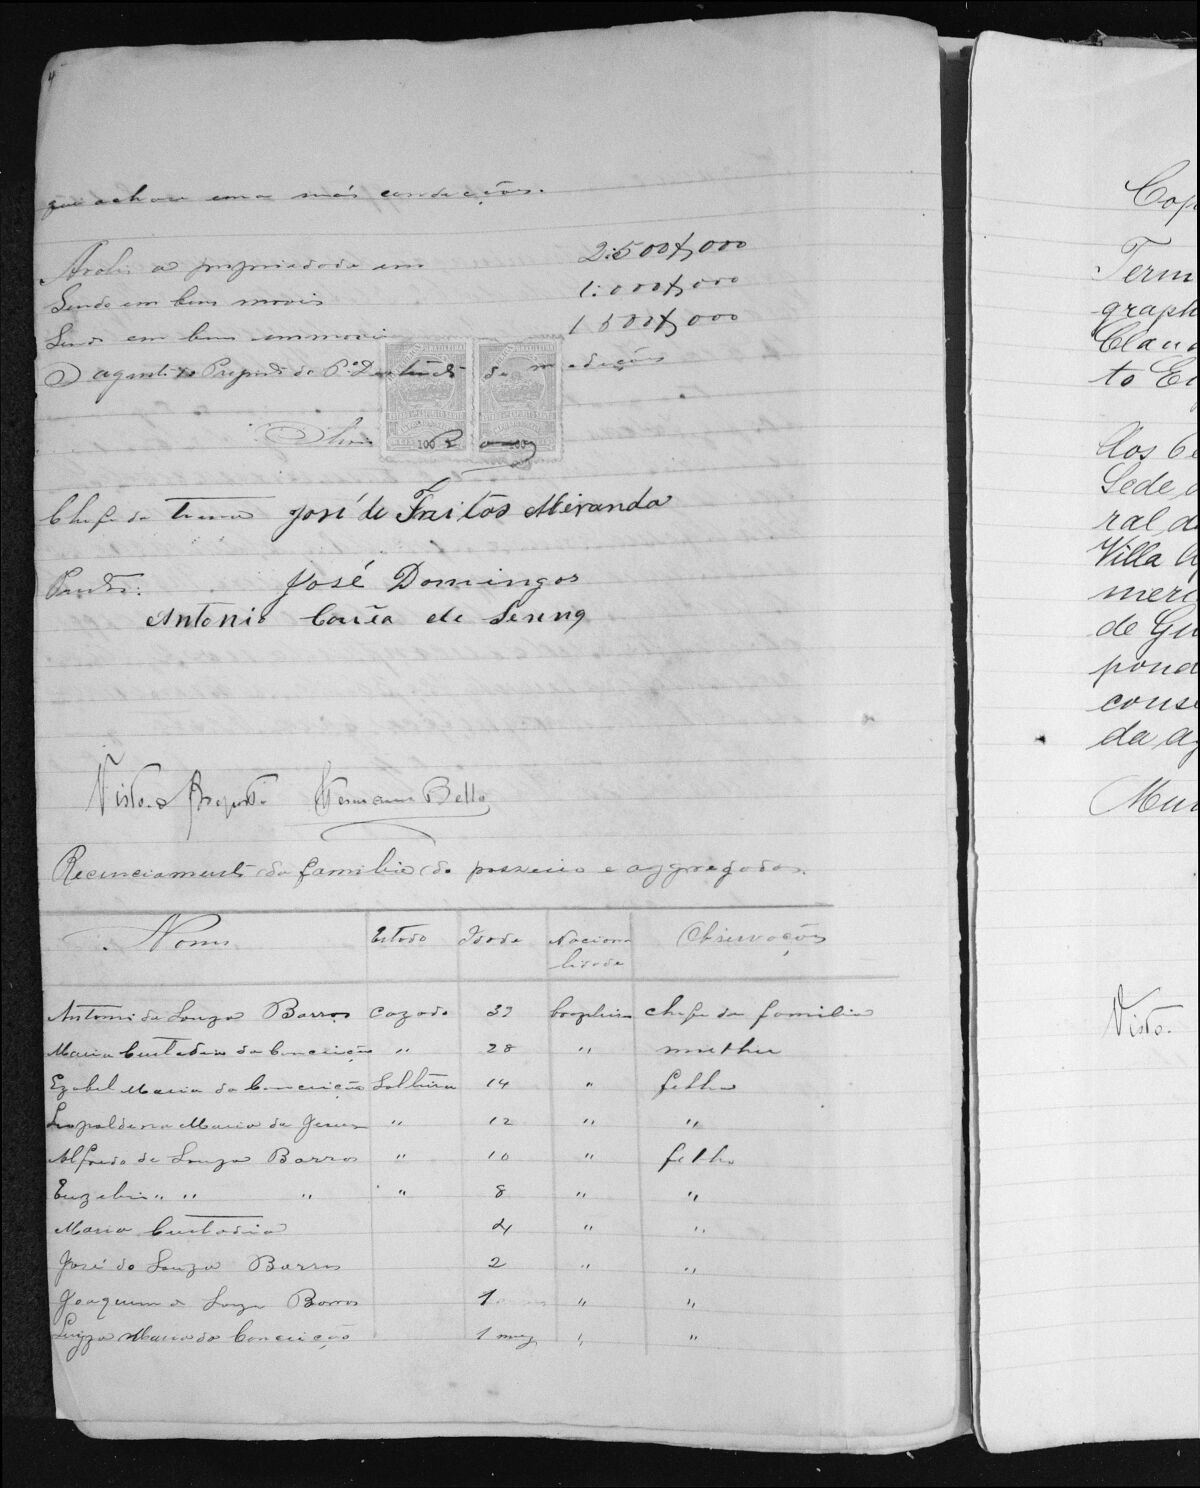 4
que achou em más condicções.
Avalio a propriedade em 2:500$000
Sendo em bens moveis 1:000$000
Sendo em bens immoveis 1 500$000
O agente do 1º Districto de medições
100 100
Chefe da turma José de Freitas Miranda
José Domingos
Antonio de
Visto. Hermann Bello
Recenciamento da familia do posseiro e aggregados.
Nomes Estado Idade Naciona Observações
lidade
Antonio de Souza Barros cazado 32 brazileiro chefe da familia
Maria Custodia da Conceição " 28 " mulher
Ezabel Maria da Conceição Solteira 14 " filha
Leopoldina Maria de Jesus " 12 " "
Alfredo de Souza Barros " 10 " filho
Euzebio " " " " 8 " "
Maria Custodia 4 " "
José de Souza Barros 2 " "
Joaquim de Souza Barros 1 " "
Luiza Maria da Conceição 1 mez " "
Cop
Term
graph
Clau
to E
los
Sede
ral d
Villa
meri
de Gu
pond
cons
da ag
Mun
Visto.